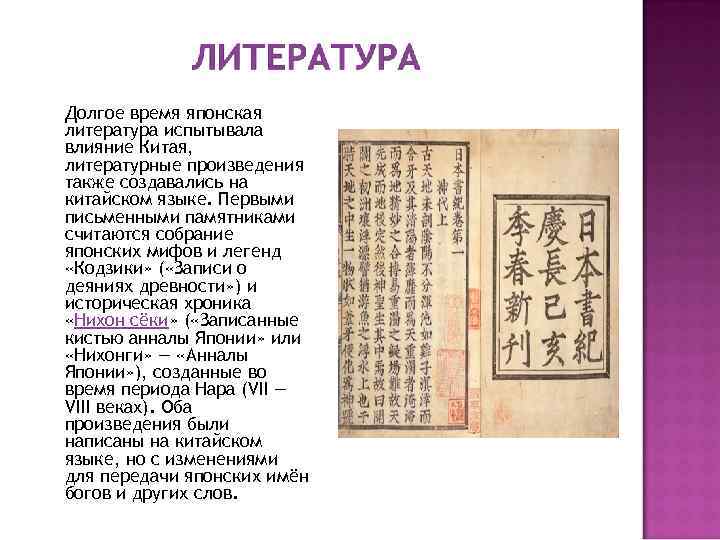 ЛИТЕРАТУРА
Долгое время японская
литература испытывала
влияние Китая,
литературные произведения
также создавались на
китайском языке. Первыми
письменными памятниками
считаются собрание
японских мифов и легенд
«Кодзики» («Записи о
деяниях древности») и
историческая хроника
«Нихон сёки» («Записанные
кистью анналы Японии» или
«Нихонги» — «Анналы
Японии»), созданные во
время периода Нара (VII —
VIII веках). Оба
произведения были
написаны на китайском
языке, но с изменениями
для передачи японских имён
богов и других слов.
日本書紀
慶長己亥
季春新刊
日本書紀卷第一
神代上
古天地未剖陰陽不分渾沌如雞子溟涬而
含牙及其清陽者薄靡而爲天重濁者淹滯
而爲地精妙之合搏易重濁之凝場難故天
先成而地後定然後神聖生其中焉故曰開
闢之初洲壤浮漂譬猶游魚之浮水上也于
時天地之中生一物狀如葦牙便化爲神號